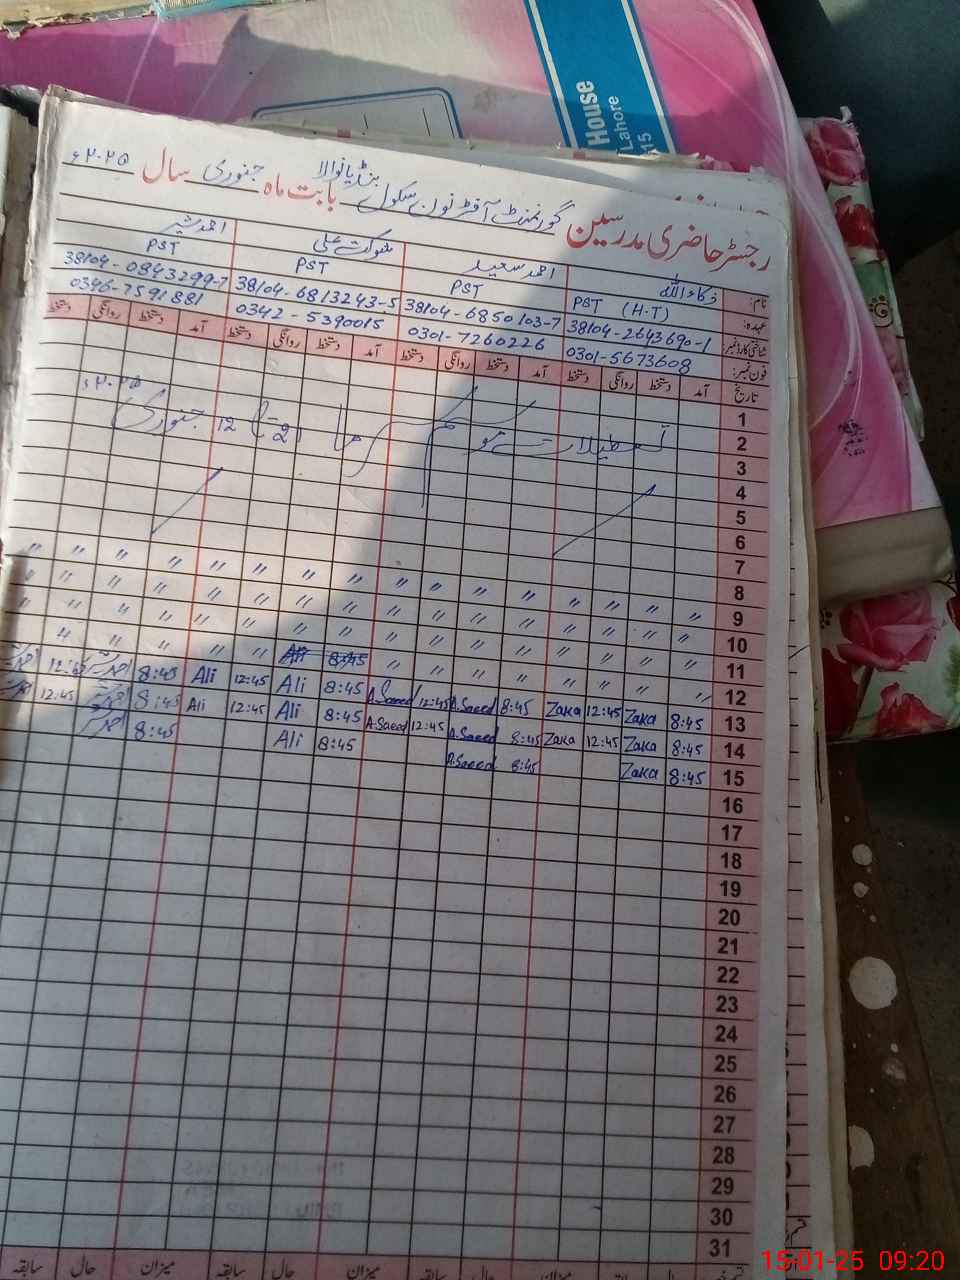 House
Lahore
رجسٹر حاضری مدرسین گورنمنٹ آفٹر نون سکول بنڈیانوالا بابت ماہ جنوری سال ۲۰۲۵ء
نام: ذکاء اللہ احمد سعید شوکت علی احمد شیر
عہدہ: PST (H.T) PST PST PST
شناختی کارڈ نمبر 38104-2643690-1 38104-6850103-7 38104-6813243-5 38104-0843299-7
فون نمبر: 0301-5673608 0301-7260226 0342-5390015 0346-7591881
تاریخ آمد دستخط روانگی دستخط آمد دستخط روانگی دستخط آمد دستخط روانگی دستخط آمد دستخط روانگی دستخط
1
2 تعطیلات موسم سرما 21 تا 12 جنوری ۲۰۲۵ء
3
4
5
6
7
8 " " " " " " " " " " " " " " " "
9 " " " " " " " " " " " " " " " "
10 " " " " " " " " " " " " " " " "
11 " " " " " " 8:45 Ali " " " " "
12
13 8:45 Zaka 12:45 Zaka 8:45 A.Saeed 12:45 A.Saeed 8:45 Ali 12:45 Ali 8:45 احمد شیر 12:45 احمد شیر
14 8:45 Zaka 12:45 Zaka 8:45 A.Saeed 12:45 A.Saeed 8:45 Ali 12:45 Ali 8:45 احمد شیر 12:45 احمد شیر
15 8:45 Zaka 8:45 A.Saeed 8:45 Ali 8:45 احمد شیر
16
17
18
19
20
21
22
23
24
25
26
27
28
29
30
31
میزان حال سابقہ میزان حال سابقہ میزان حال سابقہ
15-01-25 09:20